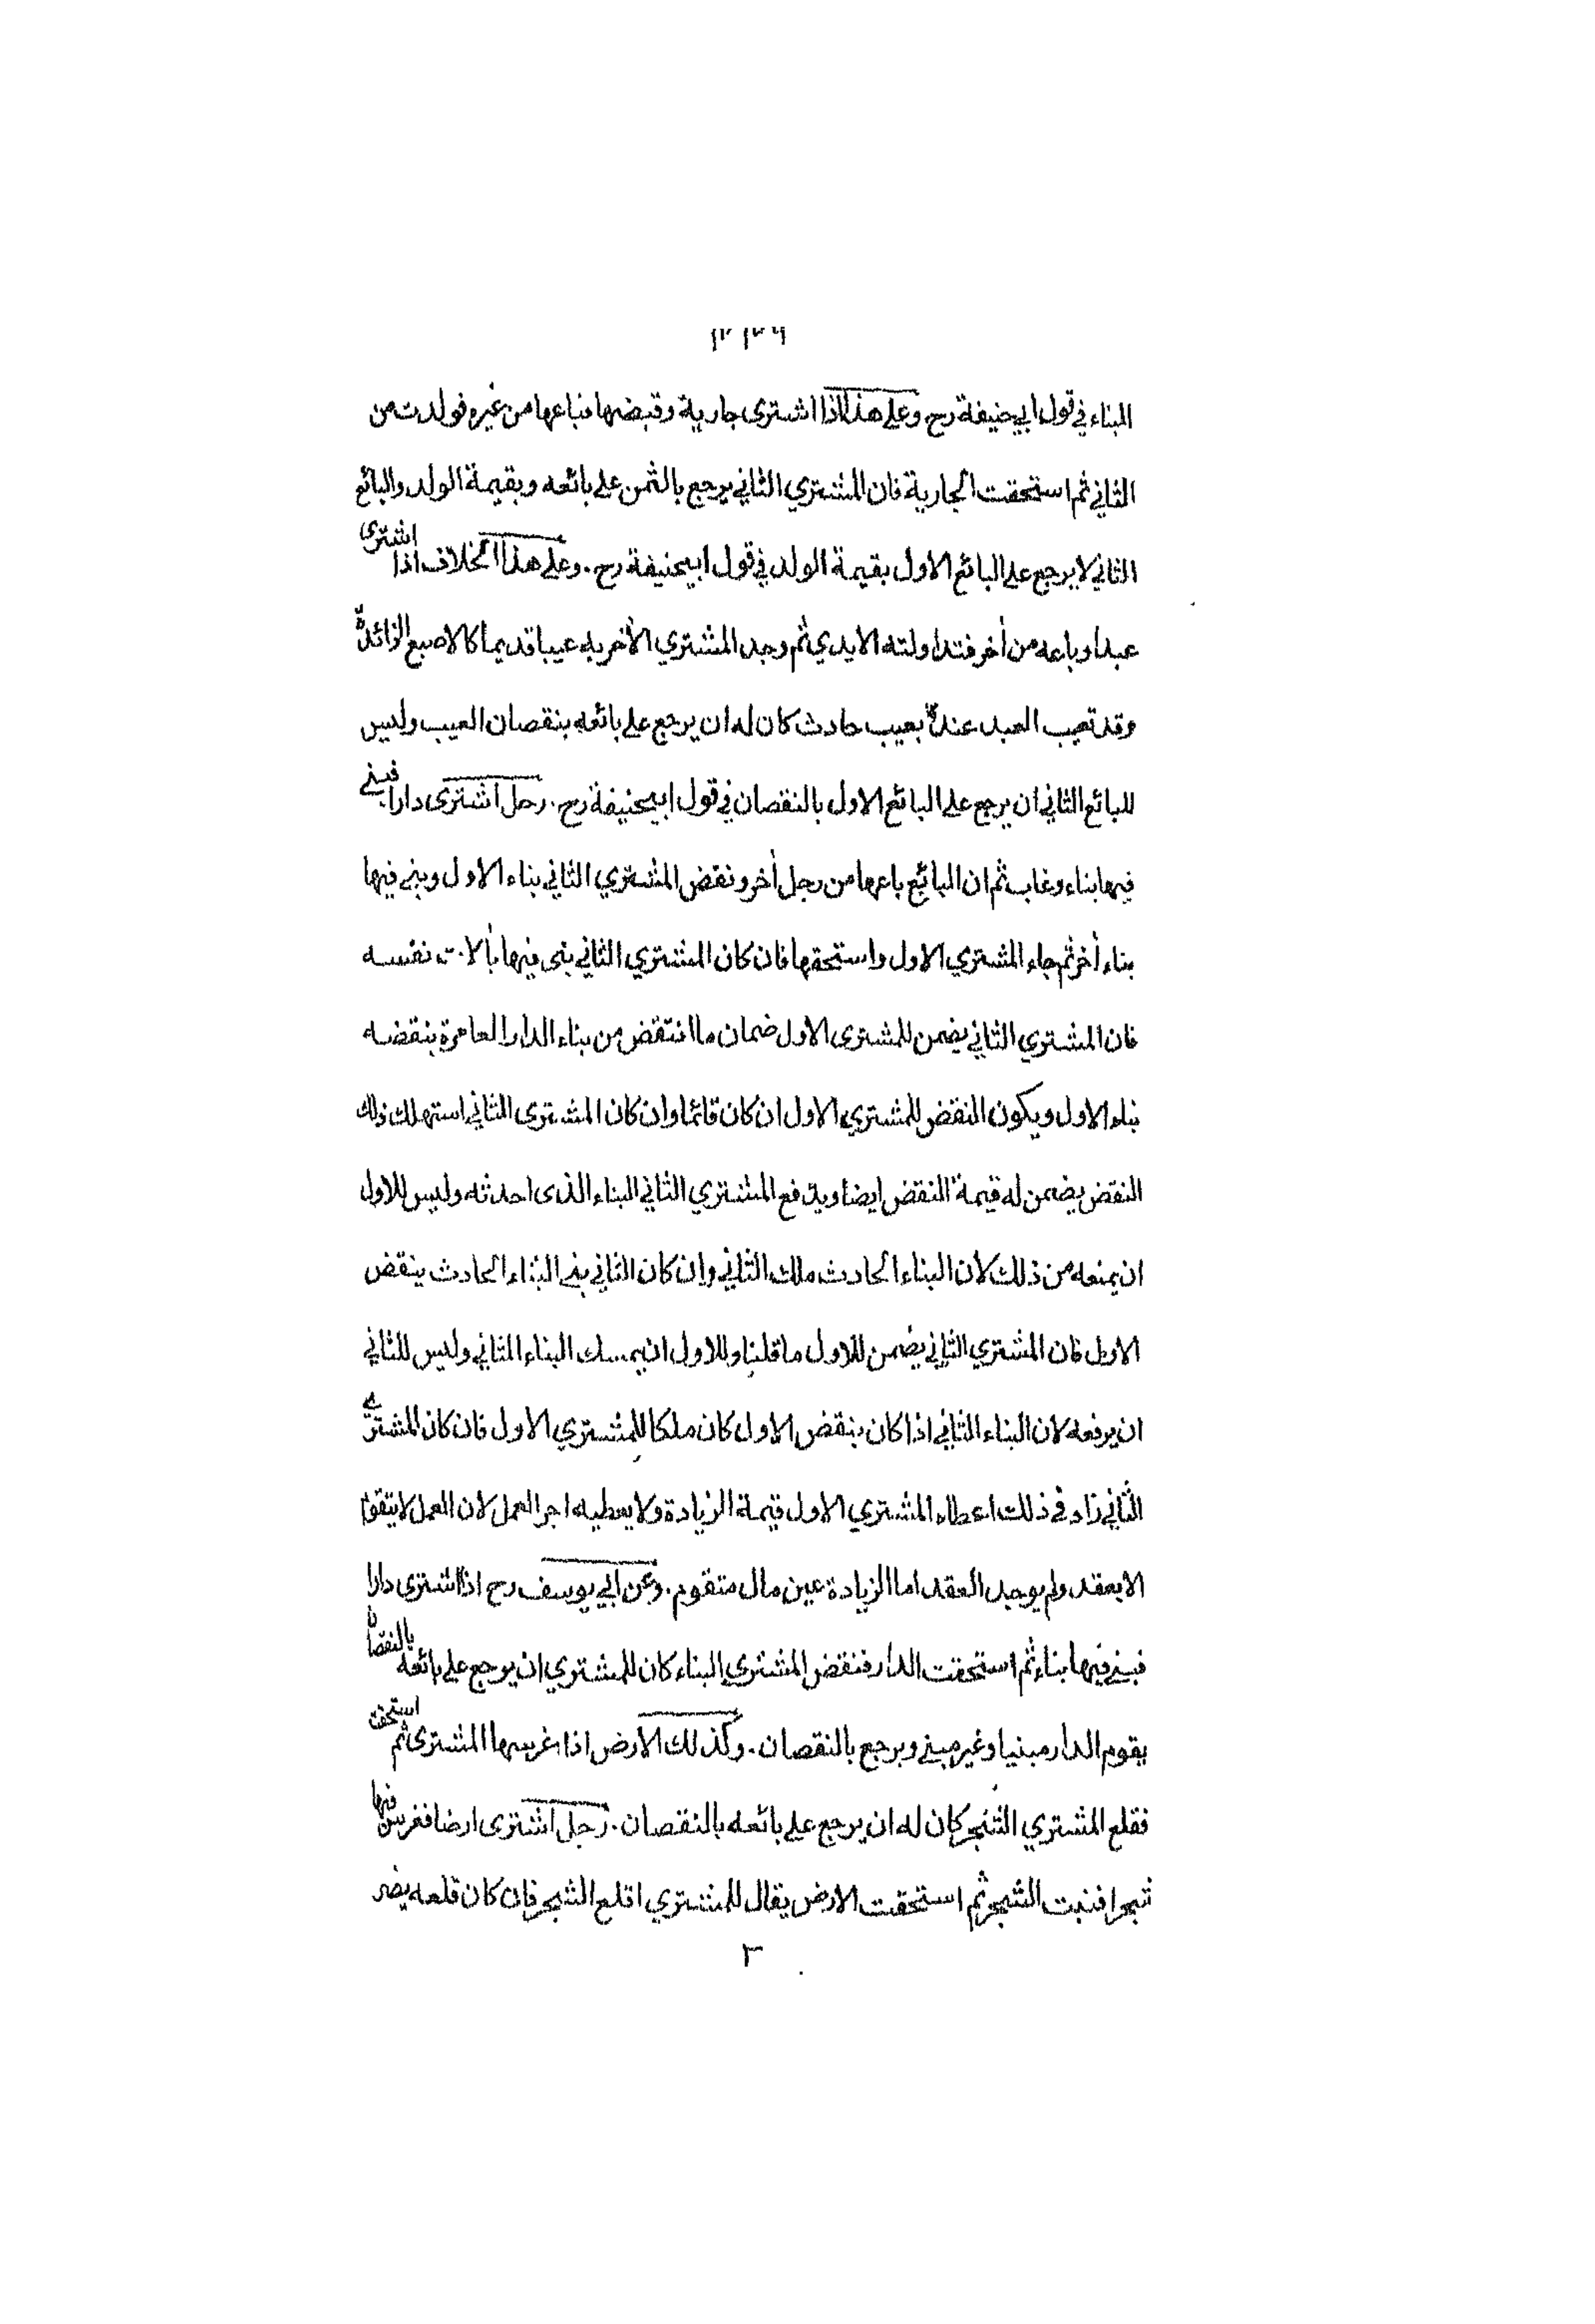 البناء في قول ابي حنيفة رح وعلى هذا اذا اشترى جارية وقبضها فباعها من غيره فولدت من
الثاني ثم استحقت الجارية فان المشتري الثاني يرجع بالثمن على بائعه وبقيمة الولد والبائع
الثاني لا يرجع على البائع الاول بقيمة الولد في قول ابيحنيفة رح . وعلى هذا الخلاف اذا اشترى
عبدا وباعه من أخر فتداولته الايدي ثم وجد المشتري الأخر به عيبا قديما كالاصبع الزائدة
وقد تعيب العبد عنده بعيب حادث كان له ان يرجع على بائعه بنقصان العيب وليس
للبائع الثاني ان يرجع على البائع الاول بالنقصان في قول ابيحنيفة رح . رجل اشترى دارا فبنى
فيها بناء وغاب ثم ان البائع باعها من رجل أخر ونقض المشتري الثاني بناء الاول وبنى فيها
بناء أخر ثم جاء المشتري الاول واستحقها فان كان المشتري الثاني بنى فيها بألات نفسه
فان المشتري الثاني يضمن للمشترى الاول ضمان ما انتقض من بناء الدار العامرة بنقضه
بناء الاول ويكون النقض للمشتري الاول ان كان قائما وان كان المشترى الثاني استهلك ذلك
النقض يضمن له قيمة النقض ايضا ويدفع المشتري الثاني البناء الذى احدثه وليس للاول
ان يمنعه من ذلك لان البناء الحادث ملك الثاني وان كان الثاني بنى البناء الحادث بنقض
الاول فان المشتري الثاني يضمن للاول ما قلنا وللاول ان يمسك البناء الثاني وليس للثاني
ان يرفعه لان البناء الثاني اذا كان بنقض الاول كان ملكا للمشتري الاول فان كان المشتري
الثاني زاد في ذلك اعطاه المشتري الاول قيمة الزيادة ولا يعطيه اجر العمل لان العمل لا يتقوم
الا بعقد ولم يوجد العقد اما الزيادة عين مال متقوم . وعن ابي يوسف رح اذا اشترى دارا
فبنى فيها بناء ثم استحقت الدار فنقض المشتري البناء كان للمشتري ان يرجع على بائعه بالنقصان
يقوم الدار مبنيا وغير مبنى ويرجع بالنقصان . وكذلك الارض اذا غرسها المشترى ثم استحقت
فقلع المشتري الشجر كان له ان يرجع على بائعه بالنقصان . رجل اشترى ارضا فغرس فيها
شجرا فنبت الشجر ثم استحقت الارض يقال للمشتري اقلع الشجر فان كان قلعه يضر
٣